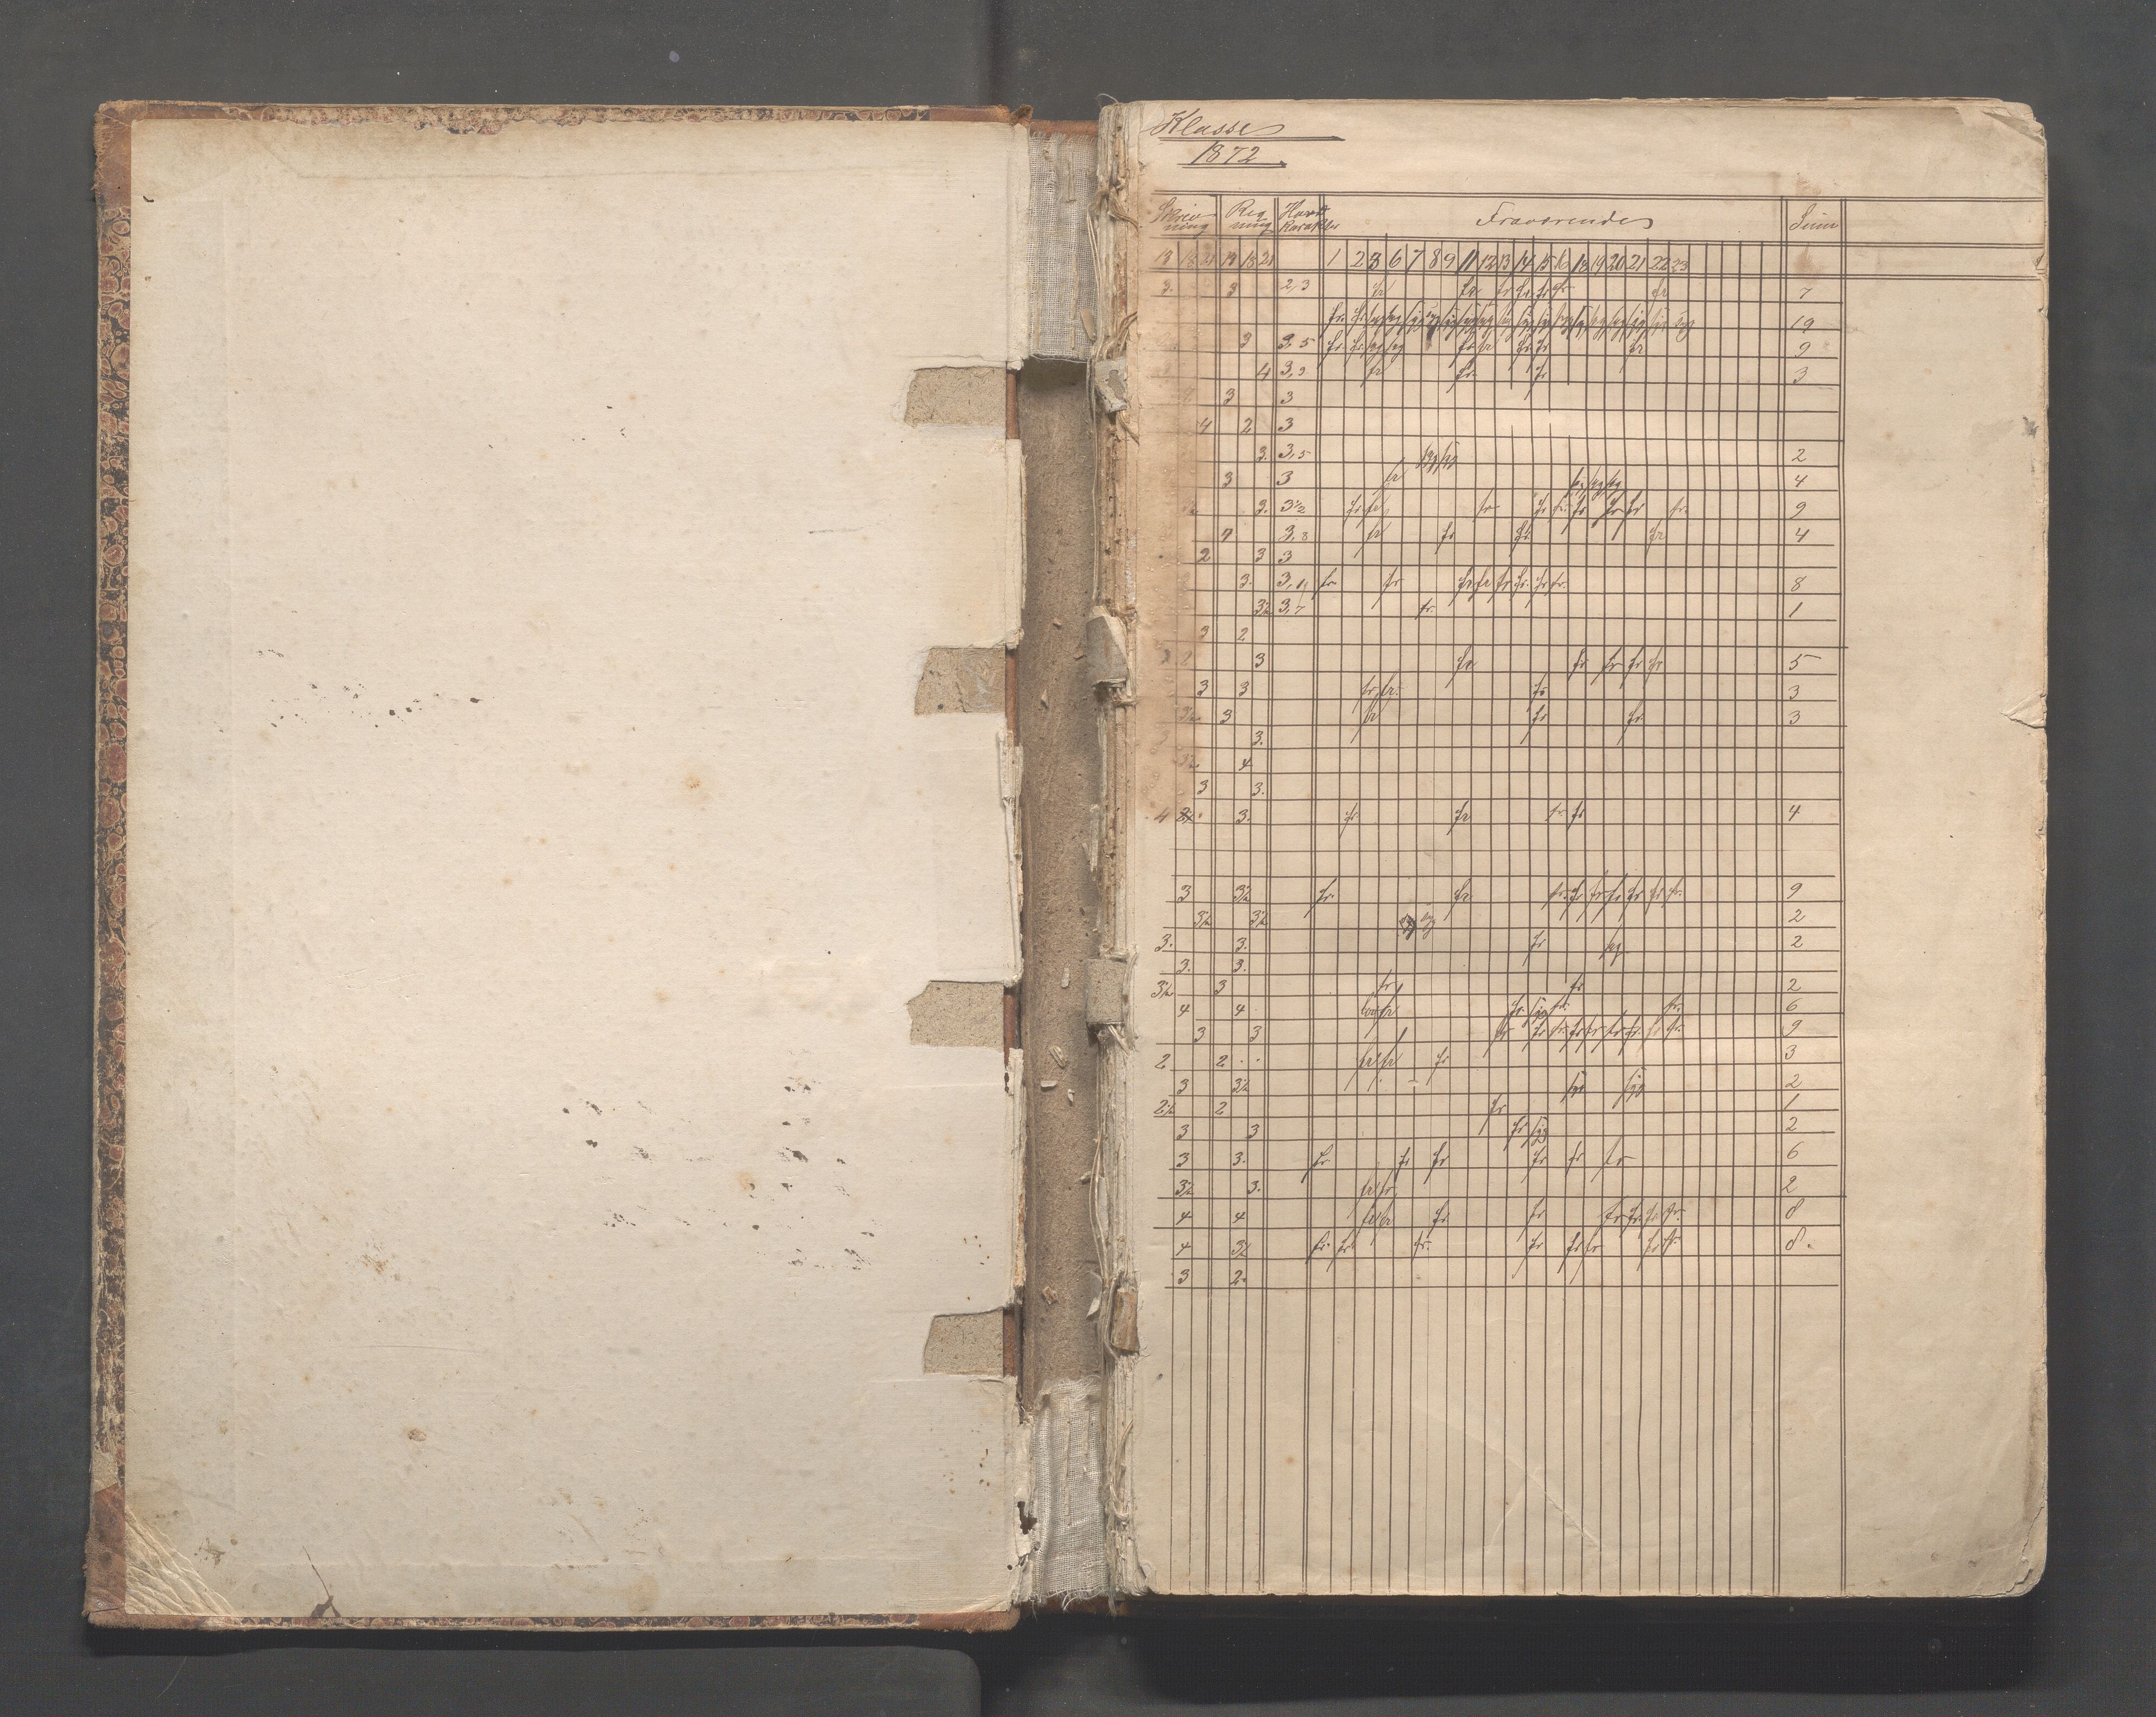 Klasse
1872
Skriv- ning Reg ning Hoved Karakter Fraværende Sum
18 21 18 21 1 2 3 6 7 8 9 11 12 13 14 15 16 18 19 20 21 22 23
3. 3 2,3 fr fr fr fr fr fr fr 7
fr. fr 19
3 3,5 fr fr fr fr fr fr fr 9
4 3,3 fr fr. fr 3
3 3
4 2 3
3. 3,5 syg syg 2
3 3 fr syg syg syg 4
3. 3½ fr fr fr fr fr fr fr fr fr. 9
3,8 fr fr fr. fr 4
2 3 3
3. fr fr fr fr fr fr. fr fr. 8
3½ 3,7 fr. 1
3 2
3 fr fr fr fr fr 5
3 3 fr fr. fr 3
3½ 3 fr fr fr 3
3.
3½ 4
3 3.
4 3. fr. fr fr. fr 4
3 3½ fr. fr. fr. fr fr fr fr fr fr. 9
3½ 3½ syg 2
3. 3. fr syg 2
3. 3.
3½ 3 fr fr 2
4 4 fr fr. syg fr. fr. 6
3 3 fr fr fr. fr fr fr fr. fr fr. 9
2 2 fr fr fr 3
3 3½ syg syg 2
2½ 2 fr 1
3 3 fr syg 2
3 3. fr. fr fr fr fr fr 6
3½ 3. fr fr. 2
4 4 fr fr fr fr fr fr. fr fr. 8
4 3½ fr. fr. fr. fr fr fr fr fr. 8.
3 2.